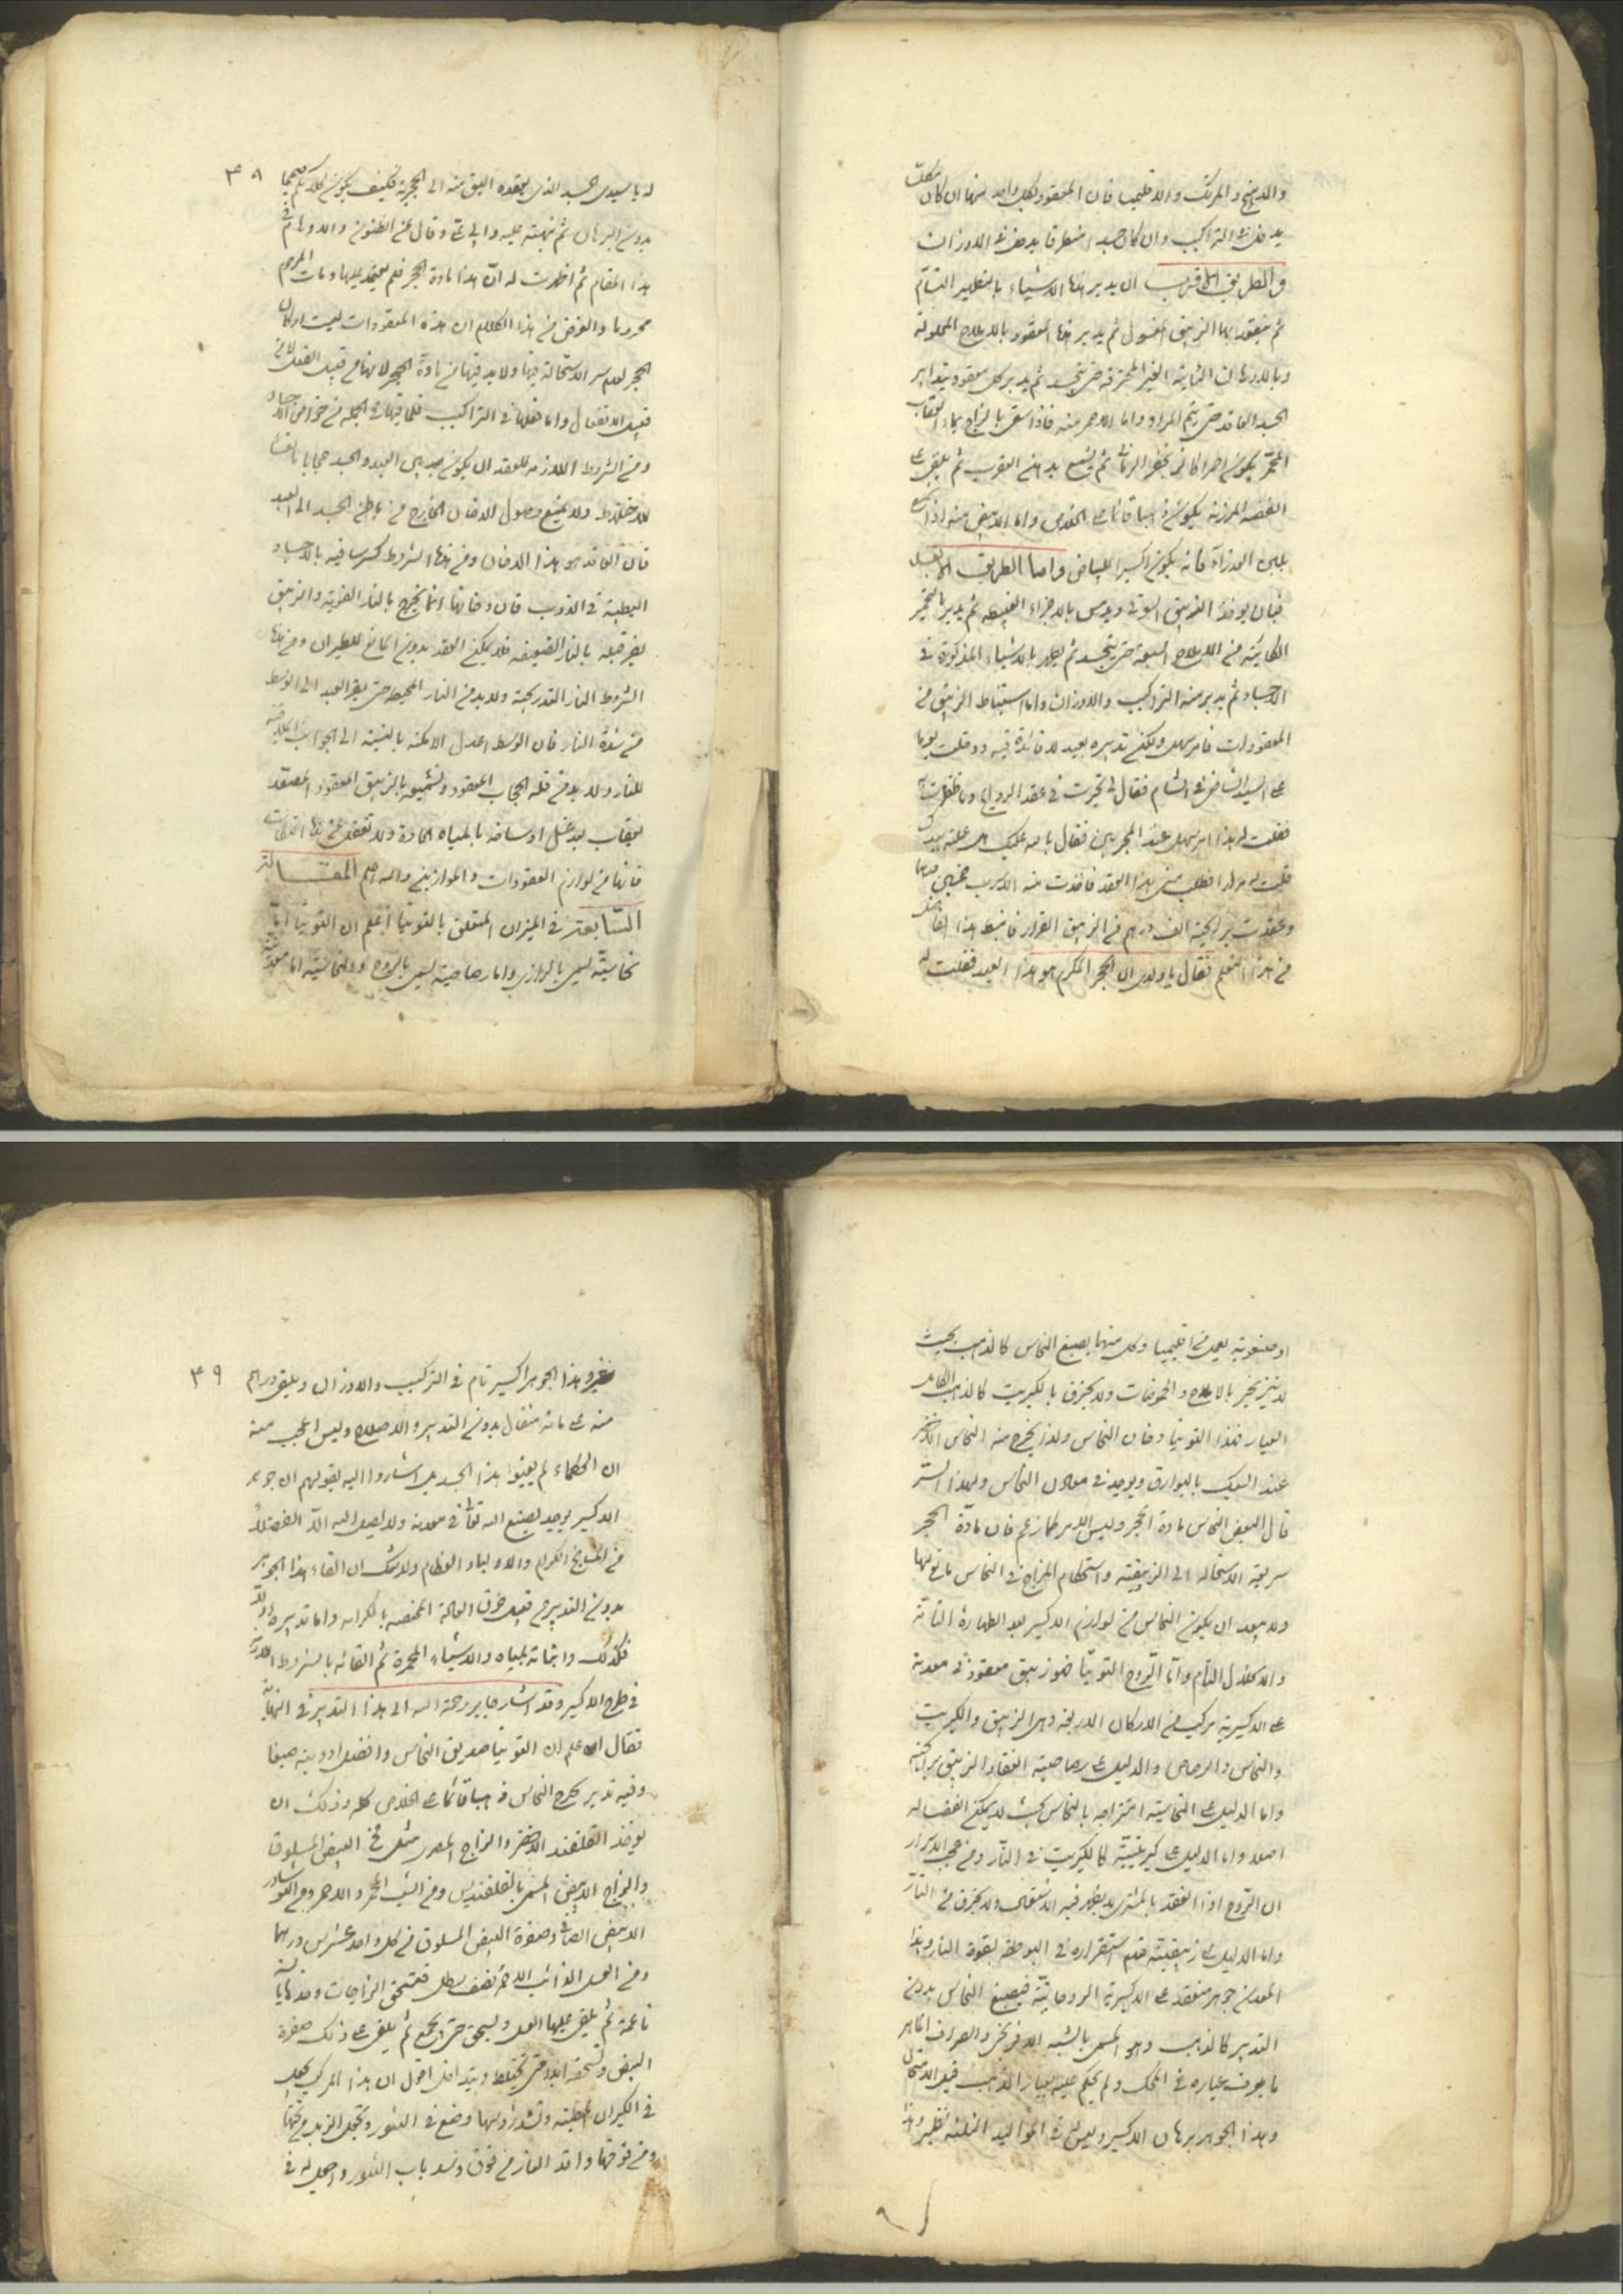 والمرتك والاقليميا فان المعقود لكل واحد منها ان كان
يدخل في التراكيب وان كان جسدا منطرقا يدخل في الاوزان
والطريق الاقرب ان يدبر هذا الاشياء بالتطهير التام
ثم ينعقد بها الزيبق المغسول ثم يدبر هذا المعقود بالاملاح المحلولة
وبالادهان الثابتة الغير المحترقة حتى يتجسد ثم يدبر كل معقود بتدابير
الجسد العاقد حتى يتم المراد واما الاحمر منه فاذا سقى بالزاج بماء العقاب
المحمر يكون احمرا كالزنجفر الرماني ثم يشمع بدهن العقرب ثم يلقى على
الفضة المرزنة يكون ذهبا قائما على الخلاص واما الابيض منه اذا
بلبن العذراء فانه يكون اكسيرا للبياض واما الطريق
فبان يوخذ الزيبق السوقي ويدس بالاجزاء القبيطه ثم يدبر
من الاملاح السبعة حتى يتجسد ثم يطهر بالاشياء المذكورة في
الاجساد ثم يدبر منه التراكيب والاوزان واما استنباط الزيبق من
المعقودات فامر سهل ولكن تدبيره بعيد لا فائدة فيه ودخلت يوما
على السيد الشاضى في الشام فقال لى تحيرت في عقد الرواج وما ظفرت
فقلت له هذا امر سهل عند المجربين فقال بالله عليك هل عملته بيدك
قلت له مرارا فطلب منى هذا العقد فاخذت منه الاسرب خمسين درهما
وعقدت برايحته الف درهم من الزيبق الفرار فانبسط هذا الفاضل
من هذا التعلم فقال يا ولدى ان الحجر المكرم هو هذا العبد فقلت له
٣٨
له يا سيدى الجسد الذى يعقده اليق منه الى الحجرية فكيف يكون كلامكم صحيحا
بدون البرهان ثم نبهته عليه وقال عن الظنون والاوهام في
هذا المقام ثم اظهرت له ان هذا مادة الحجر فلم يعتمد عليها ومات المرحوم
محروما والغرض من هذا الكلام ان هذه المعقودات ليست اركان
الحجر لعدم سر الاستحالة فيها ولا بد فيها من مادة الحجر لانها من قبيل الفعل لا من
قبيل الانفعال واما دخلها في التراكيب فلما فيها في الجملة من خواص الاجساد
ومن الشروط اللازمه للعقد ان يكون بين العبد والجسد حجابا مانعا
للاختلاط ولا يمنع وصول الدخان الخارج من باطن الجسد الى العبد
فان العاقد هو هذا الدخان ومن هذا الشروط كبر سافيه بالاجساد
البطيئة في الذوب فان دخانها انما يخرج بالنار القوية والزيبق
يفر قبله بالنار الضعيفه فلا يمكن العقد بدون المانع للطيران ومن هذا
الشروط النار التدريجية ولا بد من النار المحيطة حتى يفر العبد الى الوسط
من شدة النار فان الوسط اعدل الامكنه بالنسبة الى الجوانب
للنار ولا بد من قلة الحجاب المعقود وتشميعه بالزيبق المعقود المصعد
بعقاب بعد غسل اوساخه بالمياه الحادة ولا تغفل عن هذا النكات
فانها من لوازم العقودات والموازين والله اعلم المقالة
السابعة في الميزان المتعلق بالتوتيا اعلم ان التوتيا اما
نحاسية ليس بالرازى واما رصاصية ليس بالروح والنحاسية اما معدنية
او مصنوعية يعمل من اقليميا وكل منهما يصبغ النحاس كالذهب بحيث
لا يتزنجر بالاملاح والحموضات ولا يحترق بالكبريت كالذهب الكامل
العيار فهذا التوتيا دخان النحاس ولذا يخرج منه النحاس الاحمر
عند السبك بالبوارق ويوجد في معادن النحاس ولهذا السر
قال البعض النحاس مادة الحجر وليس الامر كما زعم فان مادة الحجر
سريعة الاستحالة الى الزيبقية واستحكام المزاج في النحاس مانع لها
ولا يبعد ان يكون النحاس من لوازم الاكسير بعد الطهارة التامة
والاعتدال التام واما الروح التوتيا فهو زيبق معقود في معدنه
على الاكسيرية مركب من الاركان الاربعة وهى الزيبق والكبريت
والنحاس والرصاص والدليل على رصاصيته انعقاد الزيبق برايحته
واما الدليل على النحاسية امتزاجه بالنحاس بحيث لا يمكن انفصاله
اصلا واما الدليل على كبريتيته كالكبريت في النار ومن عجب الاسرار
ان الروح اذا انعقد بالمشترى لا يظهر فيه الاشتعال ولا يحترق في النار
واما الدليل على زيبقيته عدم استقراره في البوطه بقوة النار وهذا
المعدن جوهر منعقد على الاكسيرية الروحانية فيصبغ النحاس بدون
التدبير كالذهب وهو المسمى بالشبه الافرنجى والصراف الماهر
ما يعرف عياره في المحك ولم يحكم عليه بعيار الذهب قبل الامتحان
وهذا الجوهر برهان الاكسير وليس له في المواليد الثلثة نظير
٣٩
وهذا الجوهر اكسير تام في التركيب والاوزان ويلقى درهم
منه على مائة مثقال بدون التدبير والاصلاح وليس اعجب منه
ان الحكماء لم يعينوا هذا الجسد بل اشاروا اليه بقولهم ان جوهر
الاكسير يوجد بصنع الله تعالى في معدنه ولا يصل اليه الا الفضلاء
من المشايخ الكرام والاولياء العظام ولا شك ان القاء هذا الجوهر
بدون التدبير من قبيل خرق العادة المختصه بالكرامه واما تدبيره
فكذلك واثباته بالمياه والاشياء المحمرة ثم القائه بالشروط
في طرح الاكسير وقد اشار جابر رحمة الله الى هذا التدبير في النهاية
فقال اعلم ان التوتيا صديق النحاس وافضل ادويته صبغا
وفيه تدبير يخرج النحاس ذهبا قائما على الخلاص كله وذلك ان
يوخذ القلقند الاخضر والزاج المصرى مثل مخ البيض المسلوق
والزاج الابيض المسمى بالقلقنديس ومن الشب المحمر والاحمر ومن النوشادر
الابيض الصافى وصفرة البيض المسلوق من كل واحد عشرين درهما
ومن العسل الذائب الاحمر نصف رطل فتسحق الزاجات وحدها
ناعمة ثم يلقى عليها العسل ويسحق حتى يجمع ثم يلقى على ذلك صفرة
البيض وتسحقه ابدا حتى يختلط ويتداخل اقول ان هذا المركب يجعل
في الكيزان المطينة وتشد رؤسها وضع في التنور وتجعل الزبل من تحتها
ومن فوقها واقد النار من فوق وسد باب التنور واجعل له في